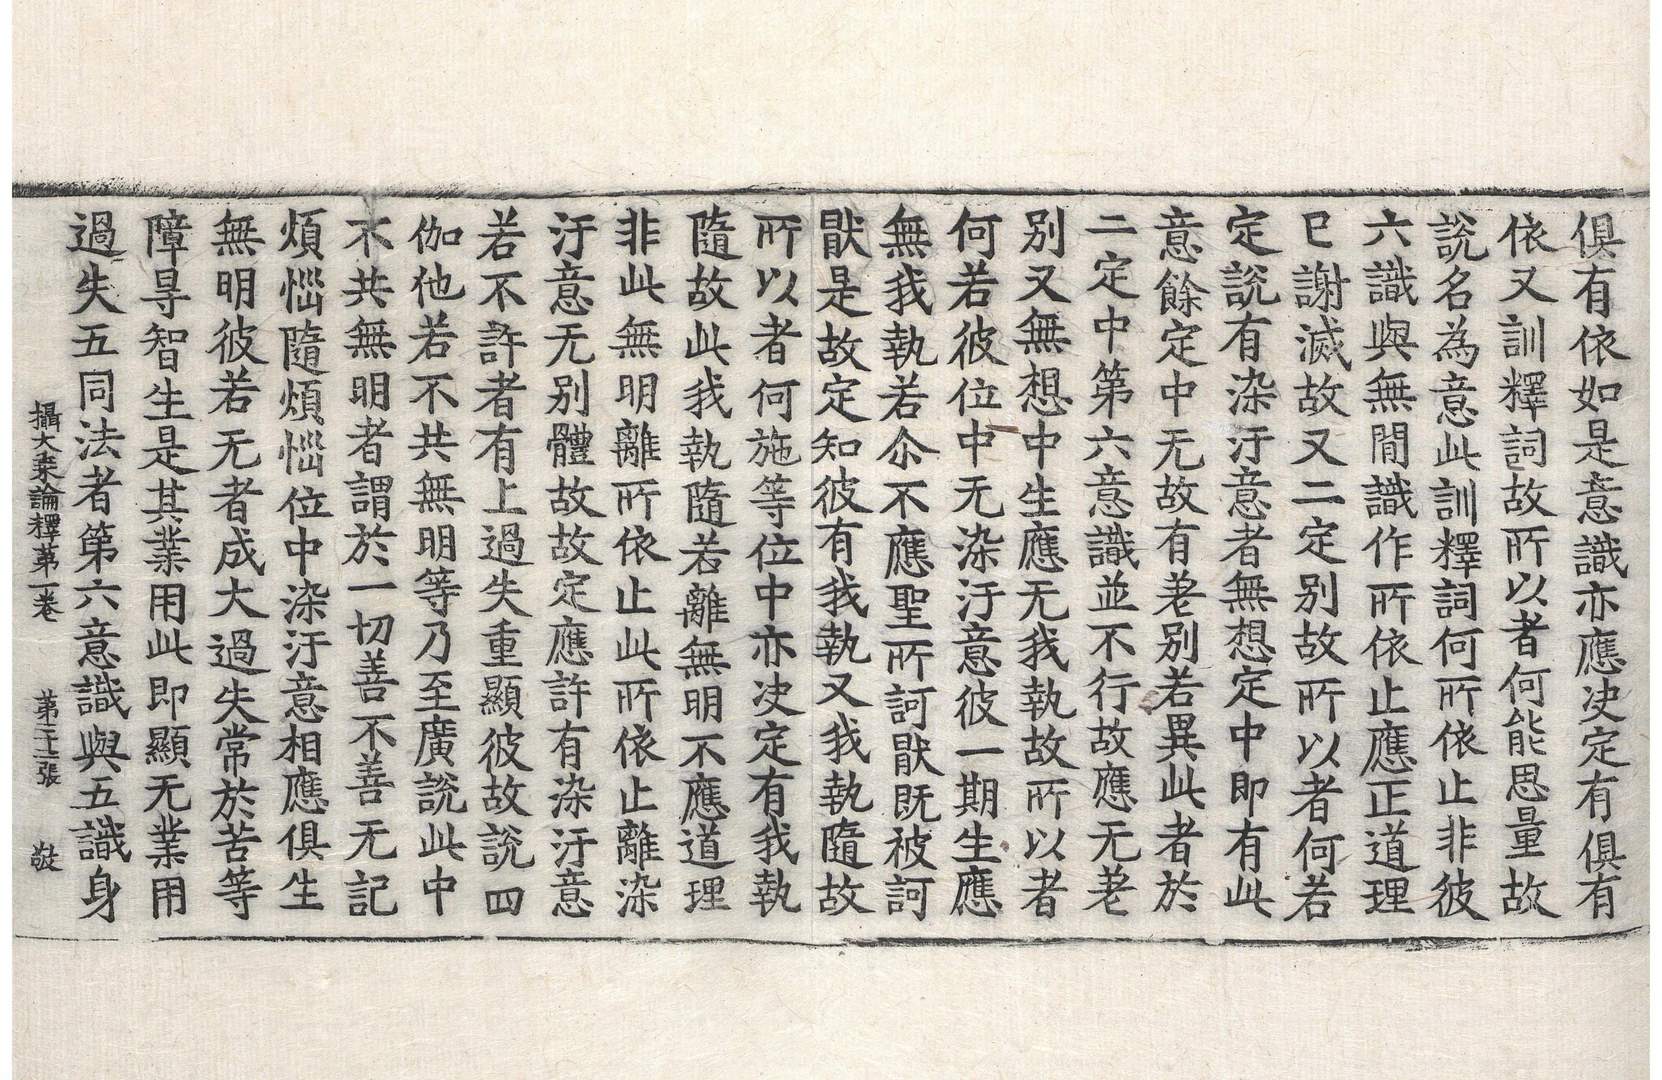 俱有依如是意識亦應决定有俱有
依又訓釋詞故所以者何能思量故
說名為意此訓釋詞何所依止非彼
六識與無間識作所依止應正道理
已謝滅故又二定別故所以者何若
定說有染汙意者無想定中即有此
意餘定中无故有差別若異此者於
二定中第六意識並不行故應无差
別又無想中生應无我執故所以者
何若彼位中无染汙意彼一期生應
無我執若尒不應聖所訶猒既被訶
猒是故定知彼有我執又我執隨故
所以者何施等位中亦决定有我執
隨故此我執隨若離無明不應道理
非此無明離所依止此所依止離染
汙意无別體故故定應許有染汙意
若不許者有上過失重顯彼故說四
伽他若不共無明等乃至廣說此中
不共無明者謂於一切善不善无記
煩惱隨煩惱位中染汙意相應俱生
無明彼若无者成大過失常於苦等
障㝵智生是其業用此即顯无業用
過失五同法者第六意識與五識身
攝大乘論釋第一卷 第二十二張 敬